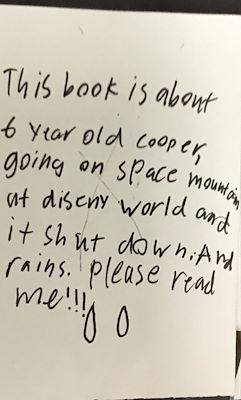 This book is about
6 year old cooper,
going on space mountain
at diseny world and
it shut down. And
rains. please read
me!!!